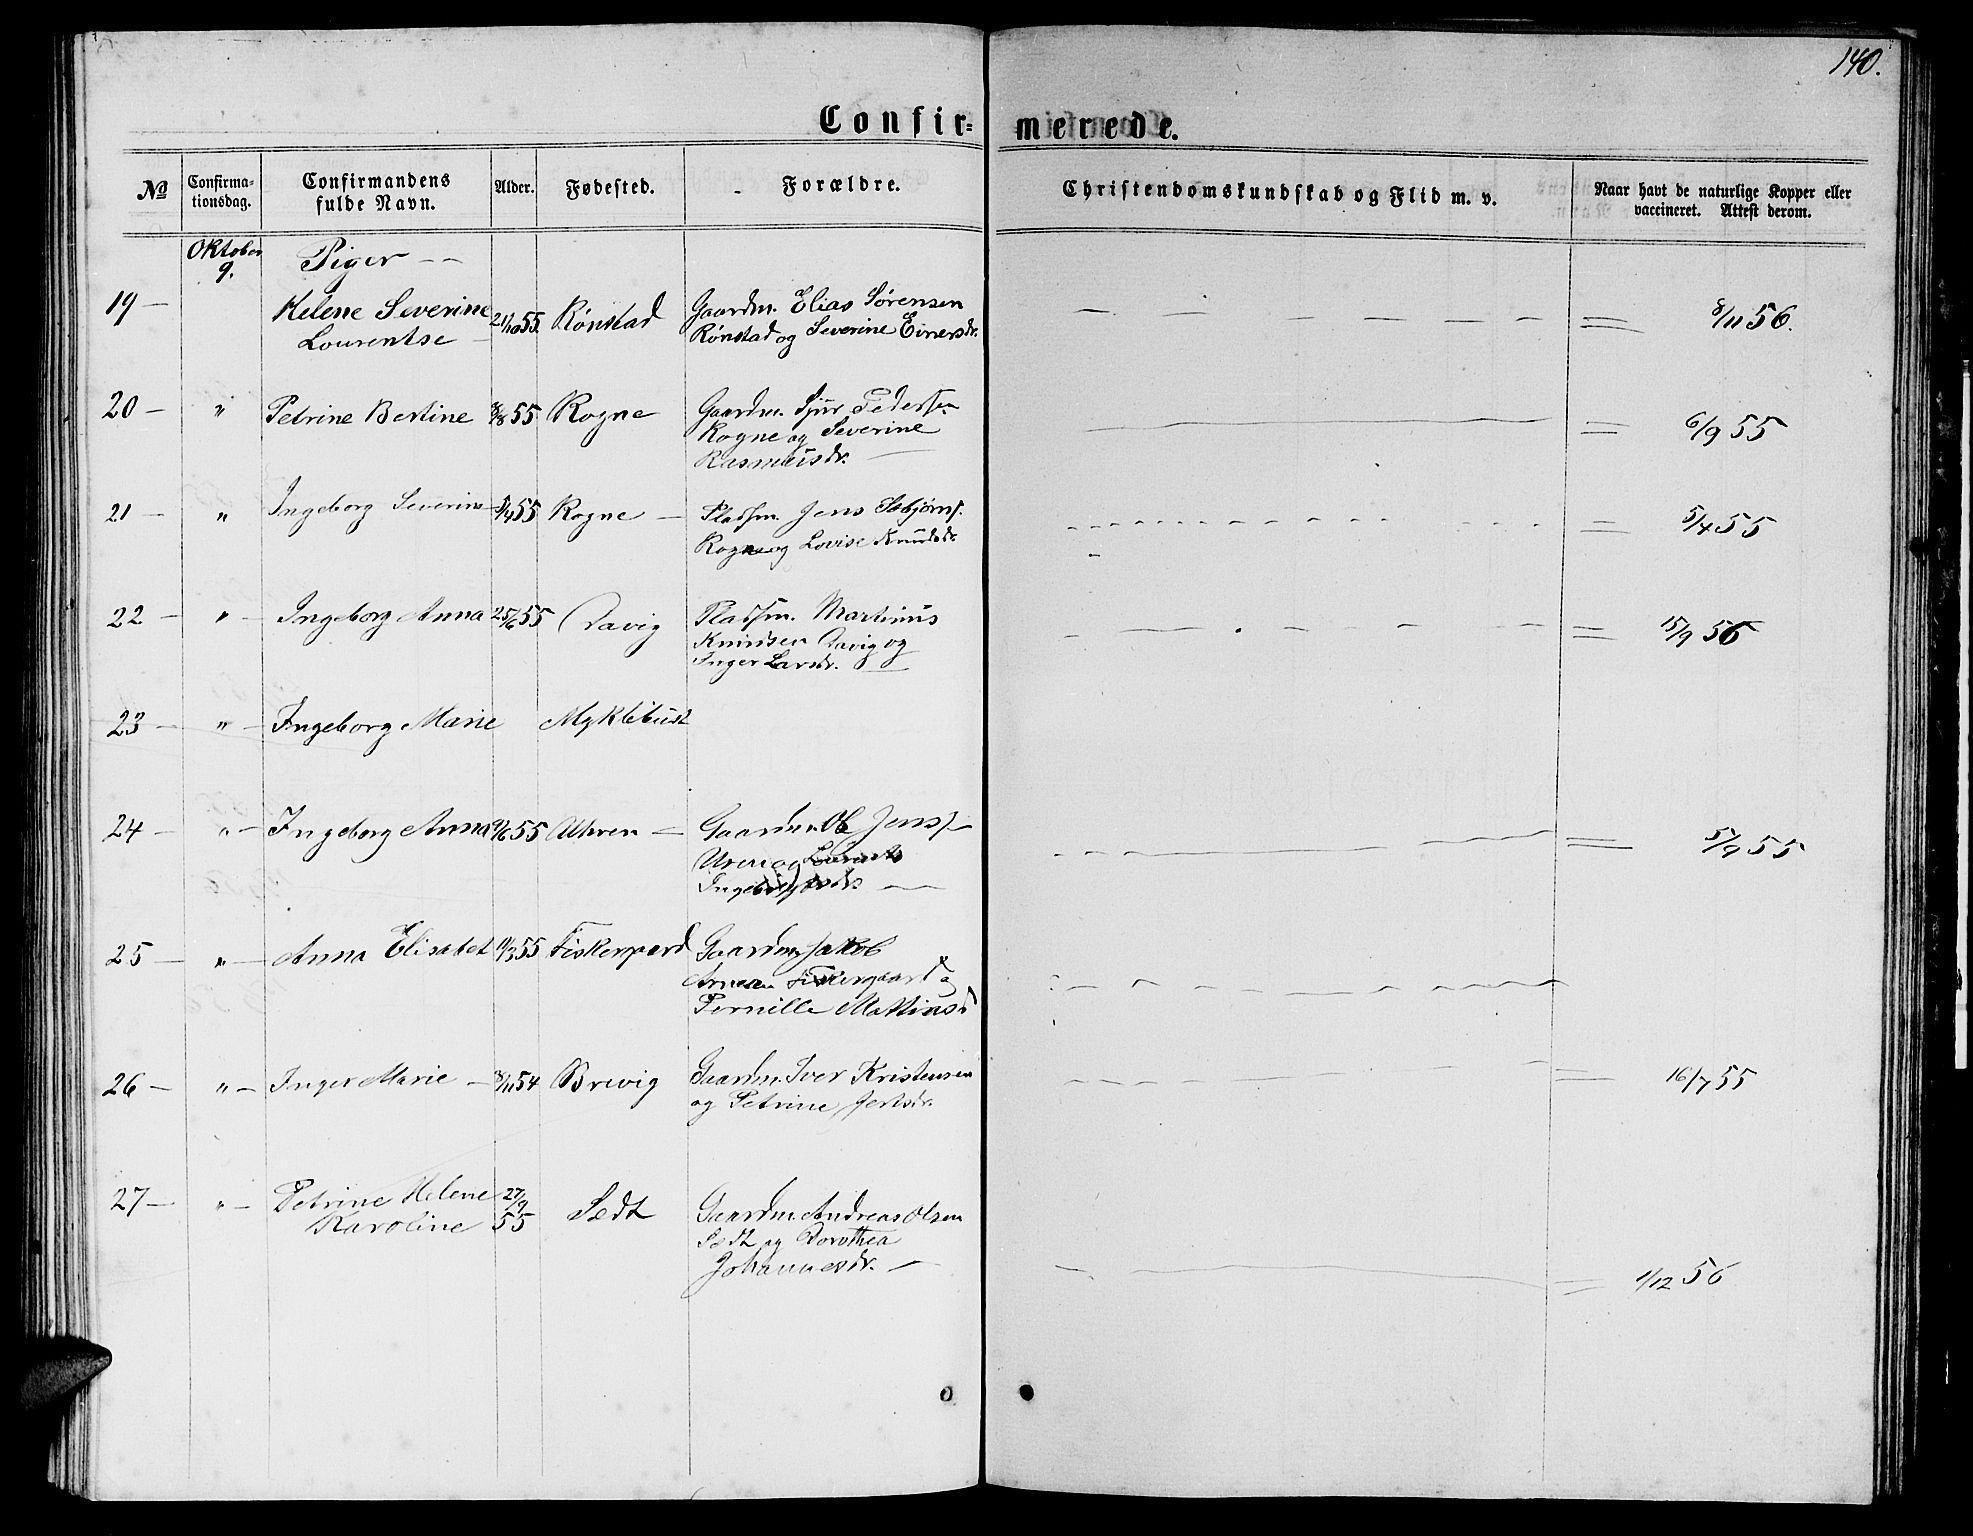 140.
Confir=
merede.
No
Confirma-
tionsdag.
Confirmandens
fulde Navn.
Alder.
Fødested.
Forældre.
Christendomskundskab og Flid m. v.
Naar havt de naturlige Kopper eller
vaccineret. Attest derom.
Oktober
9.
Piger
19 — Helene Severine 21/10 55. Rønstad Gaardm. Elias Sørensen 8/11 56.
Lourentse Rønstad og Severine
20 — " Petrine Bertine 55 Rogne Gaardm. Sjur Pedersen 6/9 55
Rogne og Severine
Rasmusdr.
21 — " Ingeborg Severine 55 Rogne — Pladsm. Jens 5/4 55
Rogne og Lovise Knudsdr.
22 — " Ingeborg Anna 25/6 55 Davig Pladsm. Martinus 15/9 56
Knudsen Davig og
Inger Larsdr.
23 — " Ingeborg Marie Myklebust
24 — " Ingeborg Anna 55 Uhren Gaardm. Ole Jens 5/9 55
Uren og
Ingebrigtsdr.
25 — " Anna Elisabet 11/3 55 Fiskergaard Gaardm. Jakob
Arnesen Fiskergaard og
Pernille
26 — " Inger Marie — 8/11 54 Brevig Gaardm. Iver Kristensen 16/7 55
og Petrine
27 — " Petrine Helene 27/9 Sædt Gaardm. Andreas Olsen
Karoline 55 Sædt og Dorothea
Johannesdr. 1/12 56